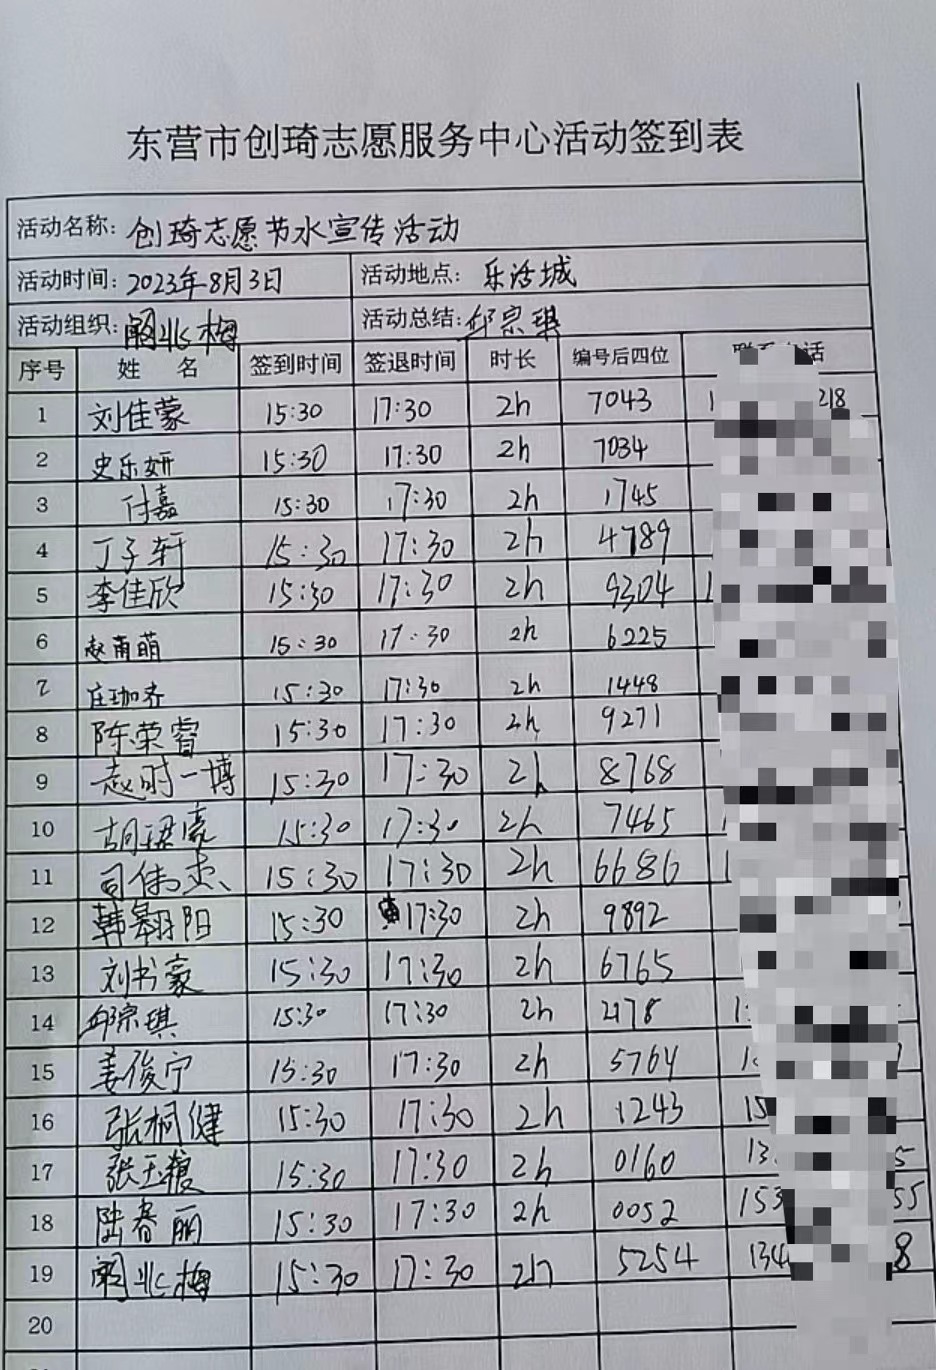 东营市创琦志愿服务中心活动签到表
活动名称: 创琦志愿节水宣传活动
活动时间: 2023年8月3日 活动地点: 乐活城
活动组织: 梅 活动总结: 邱宗琪
序号 姓 名 签到时间 签退时间 时长 编号后四位
1 刘佳蒙 15:30 17:30 2h 7043 1 218
2 史乐妍 15:30 17:30 2h 7034
3 付嘉 15:30 17:30 2h 1745
4 丁子轩 15:30 17:30 2h 4789
5 李佳欣 15:30 17:30 2h 9304 1
6 赵雨萌 15:30 17:30 2h 6225
7 庄珈齐 15:30 17:30 2h 1448
8 陈荣睿 15:30 17:30 2h 9271
9 赵时一博 15:30 17:30 2h 8768
10 胡珺豪 15:30 17:30 2h 7465
11 司伟杰 15:30 17:30 2h 6686 1
12 韩翱阳 15:30 17:30 2h 9892
13 刘书豪 15:30 17:30 2h 6765
14 邱宗琪 15:30 17:30 2h 2178 1
15 姜俊宁 15:30 17:30 2h 5764 1
16 张桐健 15:30 17:30 2h 1243 15
17 张玉 15:30 17:30 2h 0160 13 5
18 陆春丽 15:30 17:30 2h 0052 153 55
19 梅 15:30 17:30 2h 5254 134 8
20